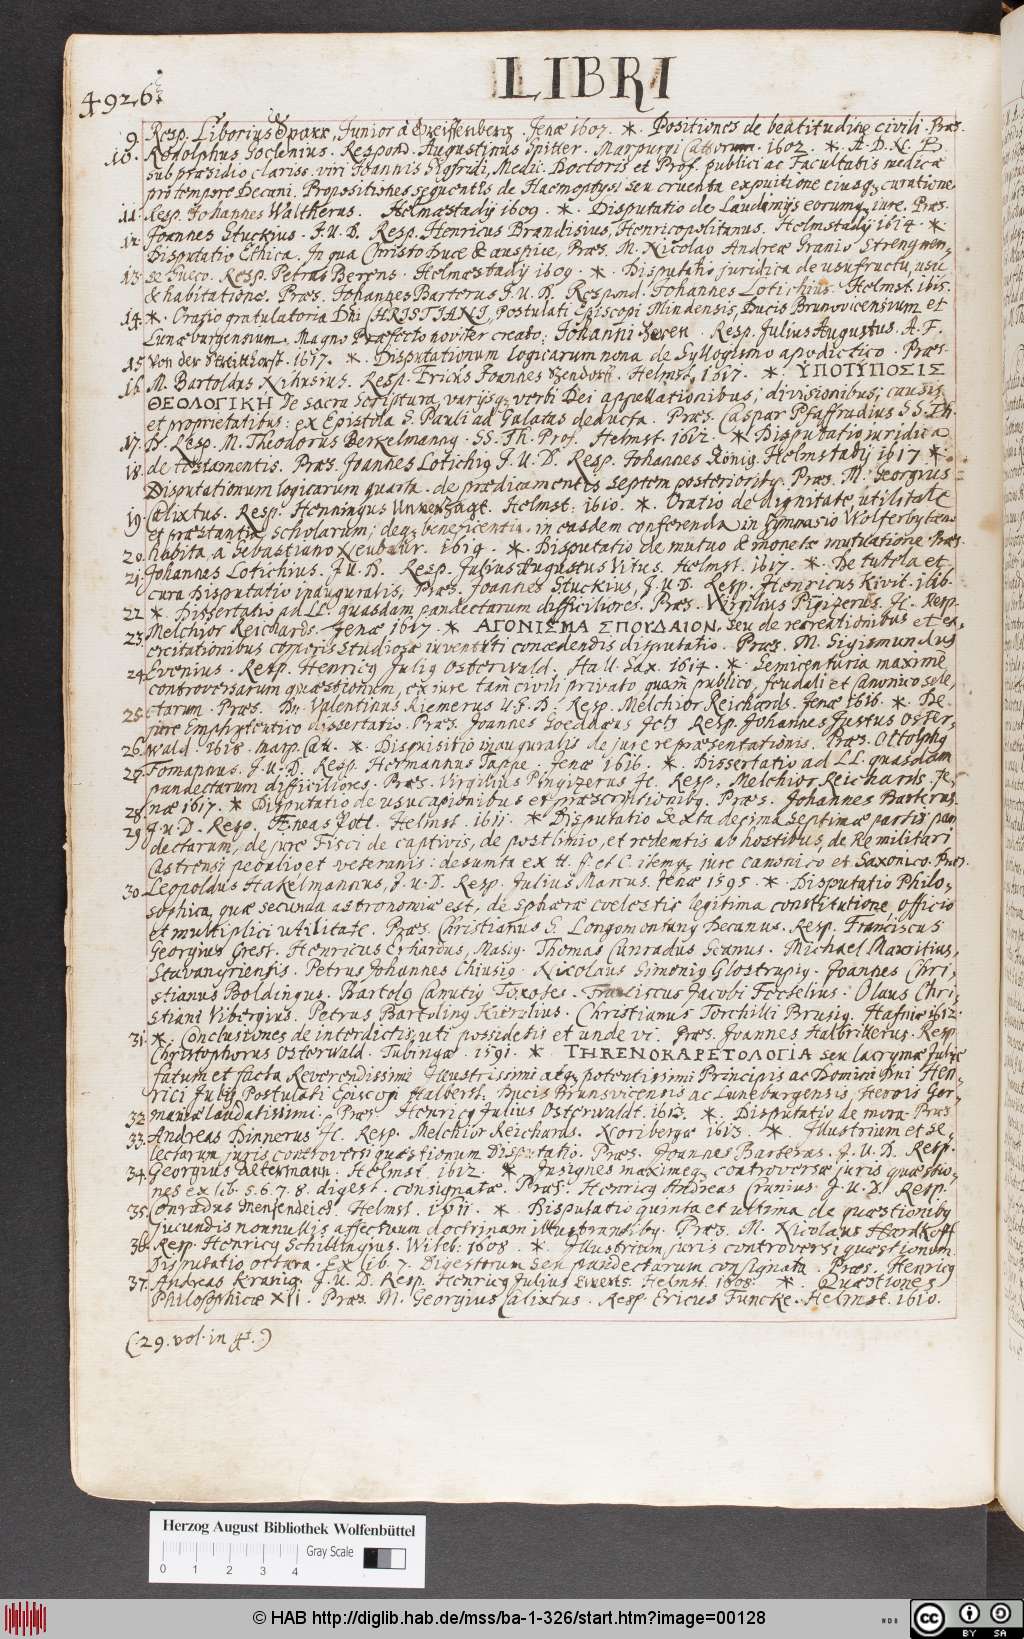 LIBRI
4926
9. Resp. Liborius Junior à Jenae 1607. * Positiones de beatitudine civili. Praes.
10. Rodolphus Goclenius. Respond. Augustinus Spitter. Marpurgi Cattorum. 1602. * A. D. R. C. P
sub praesidio clariss. viri Joannis Sigfridi, Medic. Doctoris et Prof. publici ac Facultatis medicae
pro tempore Decani, Propositiones sequentes de Haemoptysi seu cruenta expuitione eiusq; curatione
11. Resp. Johannes Waltherus. Helmaestadij 1609. * Disputatio de Laudemijs eorumq; iure. Praes.
12. Joannes Stuckius. J.U.D. Resp. Henricus Brandisius, Henricopolitanus. Helmstadij 1614. *
Disputatio Ethica. In qua Christo Duce & auspice, Praes. M. Nicolao Andreae Granio
13. Sueco. Resp. Petrus Berens. Helmaestadij 1609. * Disputatio juridica de usufructu, usu
& habitatione. Praes. Johannes Barterus J.U.D. Respond. Johannes Lotichius. Helmst. ibid.
14. * Oratio gratulatoria Dni CHRISTIANI, Postulati Episcopi Mindensis, Ducis Brunovicensium et
Lunaeburgensium. Magno Praefecto noviter creato; Johanni Resp. Julius Augustus. A. F.
15. Von der 1617. * Disputationum logicarum nona de Syllogismo apodictico. Praes.
16. M. Bartoldus Nihusius. Resp. Erichs Joannes Helmst. 1617. * ΥΠΟΤΥΠΟΣΙΣ
ΘΕΟΛΟΓΙΚΗ de sacra Scriptura, varijsq; verbi Dei appellationibus; divisionibus; causis
et proprietatibus: ex Epistola S. Pauli ad Galatas deducta. Praes. Caspar Pfaffradius SS. Th.
17. D. Resp. M. Theodorus Berkelmann9. SS. Th. Prof. Helmst. 1612. * Disputatio juridica
18. de testamentis. Praes. Joannes Lotichi9 J.U.D. Resp. Johannes König. Helmstadij 1617 *
Disputationum logicarum quarta. de praedicamentis septem posteriorib9. Praes. M. Georgius
19. Calixtus. Resp. Henningus Unverzagt. Helmst. 1610. * Oratio de dignitate, utilitate
et praestantia scholarum; deq; beneficentia in easdem conferenda in Gymnasio Wolferbytano
20. habita, a Sebastiano 1619. * Disputatio de mutuo & monetae mutuatione. Praes.
21. Johannes Lotichius. J.U.D. Resp. Julius Augustus Vitus. Helmst. 1617. * De tutela et
cura Disputatio inauguralis. Praes. Joannes Stuckius, J.U.D. Resp. Henricus Kivit. ibid.
22. * Dissertatio ad LL. quasdam pandectarum difficiliores. Praes. Virgilius Pingizerus. JC. Resp.
23. Melchior Reichards. Jenae 1617. * ΑΓΩΝΙΣΜΑ ΣΠΟΥΔΑΙΟΝ, seu de recreationibus et ex
ercitationibus corporis studiosae iuventuti concedendis disputatio. Praes. M. Sigismundus
24. Evenius. Resp. Henric9 Juli9 Osterwald. Hall. Sax. 1614. * Semicenturia maxime
controversarum quaestionum, ex iure tam civili privato quam publico, feudali et Canonico sele,
25. ctarum. Praes. Dn. Valentinus Riemerus U.J.D. Resp. Melchior Reichards. Jenae 1616. * De
jure Emphyteutico dissertatio. Praes. Joannes Goeddaeus, JCt9 Resp. Johannes Justus Oster-
26. wald. 1618. Marp. Catt. * Disquisitio inauguralis de jure repraesentationis. Praes. Ottolph9
27. Tomannus. J.U.D. Resp. Hermannus Tappe. Jenae 1616. * Dissertatio ad LL. quasdam
pandectarum difficiliores. Praes. Virgilius Pingizerus JC. Resp. Melchior Reichards. Je-
28. nae 1617. * Disputatio de usucapionibus et praescriptionib9. Praes. Johannes Barterus.
29. J.U.D. Resp. Aeneas Pott. Helmst. 1611. * Disputatio sexta decima septimae partis pan
dectarum, de jure Fisci de captivis, de postlimio, et redemtis ab hostibus, de Re militari
Castrensi peculio et veteranis: desumta ex ff. et C. itemq; jure canonico et Saxonico. Praes.
30. Leopoldus Hakelmannus, J.U.D. Resp. Julius Marcus. Jenae 1595. * Disputatio Philo-
sophica, quae secunda astronomiae est, de sphaerae coelestis legitima constitutione, officio
et multiplici utilitate. Praes. Christianus S. Longomontan9 Decanus. Resp. Franciscus
Georgius Henricus Erhardus, Thomas Cunradus Michael Mauritius,
Stavangriensis. Petrus Johannes Nicolaus Simoni9 Glostrupi9. Joannes Chri,
stianus Boldingus. Bartolo Canuti9 Franciscus Jacobi Olaus Chri-
stiani Vibergius. Petrus Bartolin9 Christianus Torchilli Brusig. Hafniae 1612.
31. * Conclusiones de interdictis, uti possidetis et unde vi. Praes. Joannes Halbritterus. Resp.
Christophorus Osterwald. Tubingae. 1591. * ΤΗΚΕΝΟΚΑΡΕΤΟΛΟΓΙΑ seu lacrymae Juliae
fatum et facta Reverendissimi Illustrissimi atq; potentissimi Principis ac Domini Dni Hen-
rici Julij Postulati Episcopi Halberst. Ducis Brunsvicensis ac Luneburgensis, Herois Ger-
32. maniae laudatissimi. Praes. Henric9 Julius Osterwaldt. 1613. * Disputatio de mora. Praes.
33. Andreas Dinnerus JC. Resp. Melchior Reichards. Noribergae 1613. * Illustrium et se-
lectarum juris controversi quaestionum Disputatio. Praes. Joannes Barterus. J.U.D. Resp.
34. Georgius Altermann. Helmst. 1612. * Insignes maximeq; controversae juris quaestio-
nes ex lib. 5. 6. 7. 8. digest. consignatae. Praes. Henric9 Andreas Cranius. J.U.D. Resp.
35. Conradus Helmst. 1611. * Disputatio quinta et ultima de quaestionib9
jucundis nonnullis affectuum doctrinam illustrantib9. Praes. M. Nicolaus Hardkopff
36. Resp. Henric9 Schillingius. Witeb. 1608. * Illustrium juris controversi quaestionum
Disputatio octava. Ex lib. 7. Digestorum seu pandectarum consignata. Praes. Henric9
37. Andreas Krani9. J.U.D. Resp. Henric9 Julius Helmst. 1608. * Quaestiones
Philosophicae XII. Praes. M. Georgius Calixtus. Resp. Ericus Funcke. Helmst. 1610.
(29. vol. in 4°.)
Herzog August Bibliothek Wolfenbüttel
Gray Scale
0 1 2 3 4
© HAB http://diglib.hab.de/mss/ba-1-326/start.htm?image=00128
WDB
cc BY SA